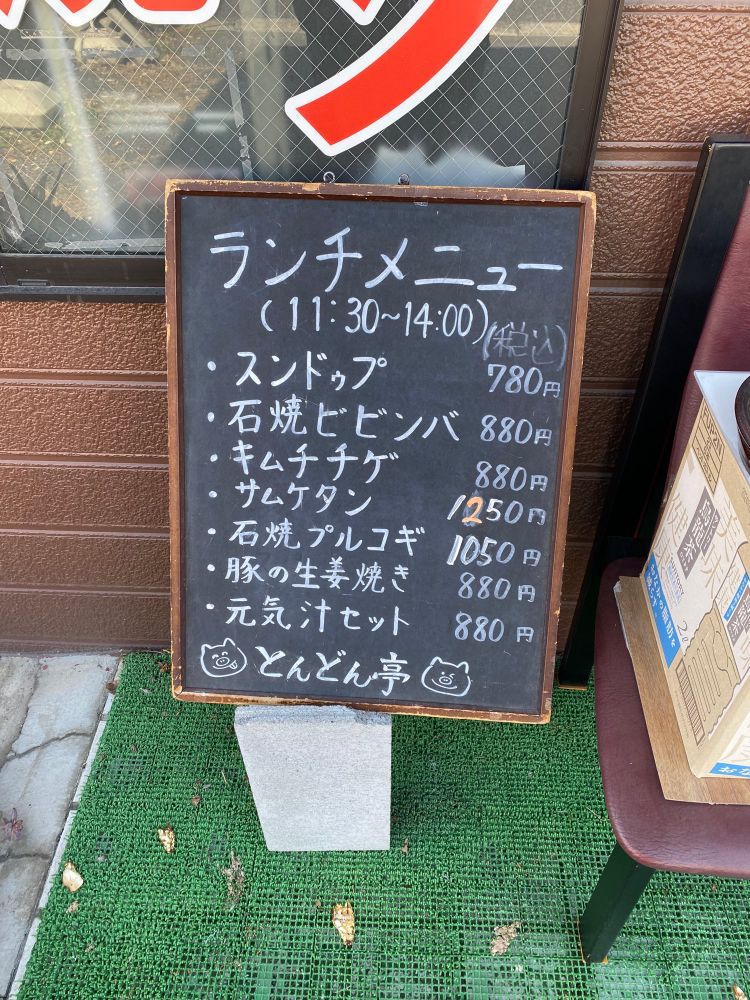 ランチメニュー
(11:30~14:00)
(税込)
・スンドゥプ 780円
・石焼ビビンバ 880円
・キムチチゲ 880円
・サムケタン 1250円
・石焼プルコギ 1050円
・豚の生姜焼き 880円
・元気汁セット 880円
とんどん亭
烏龍茶